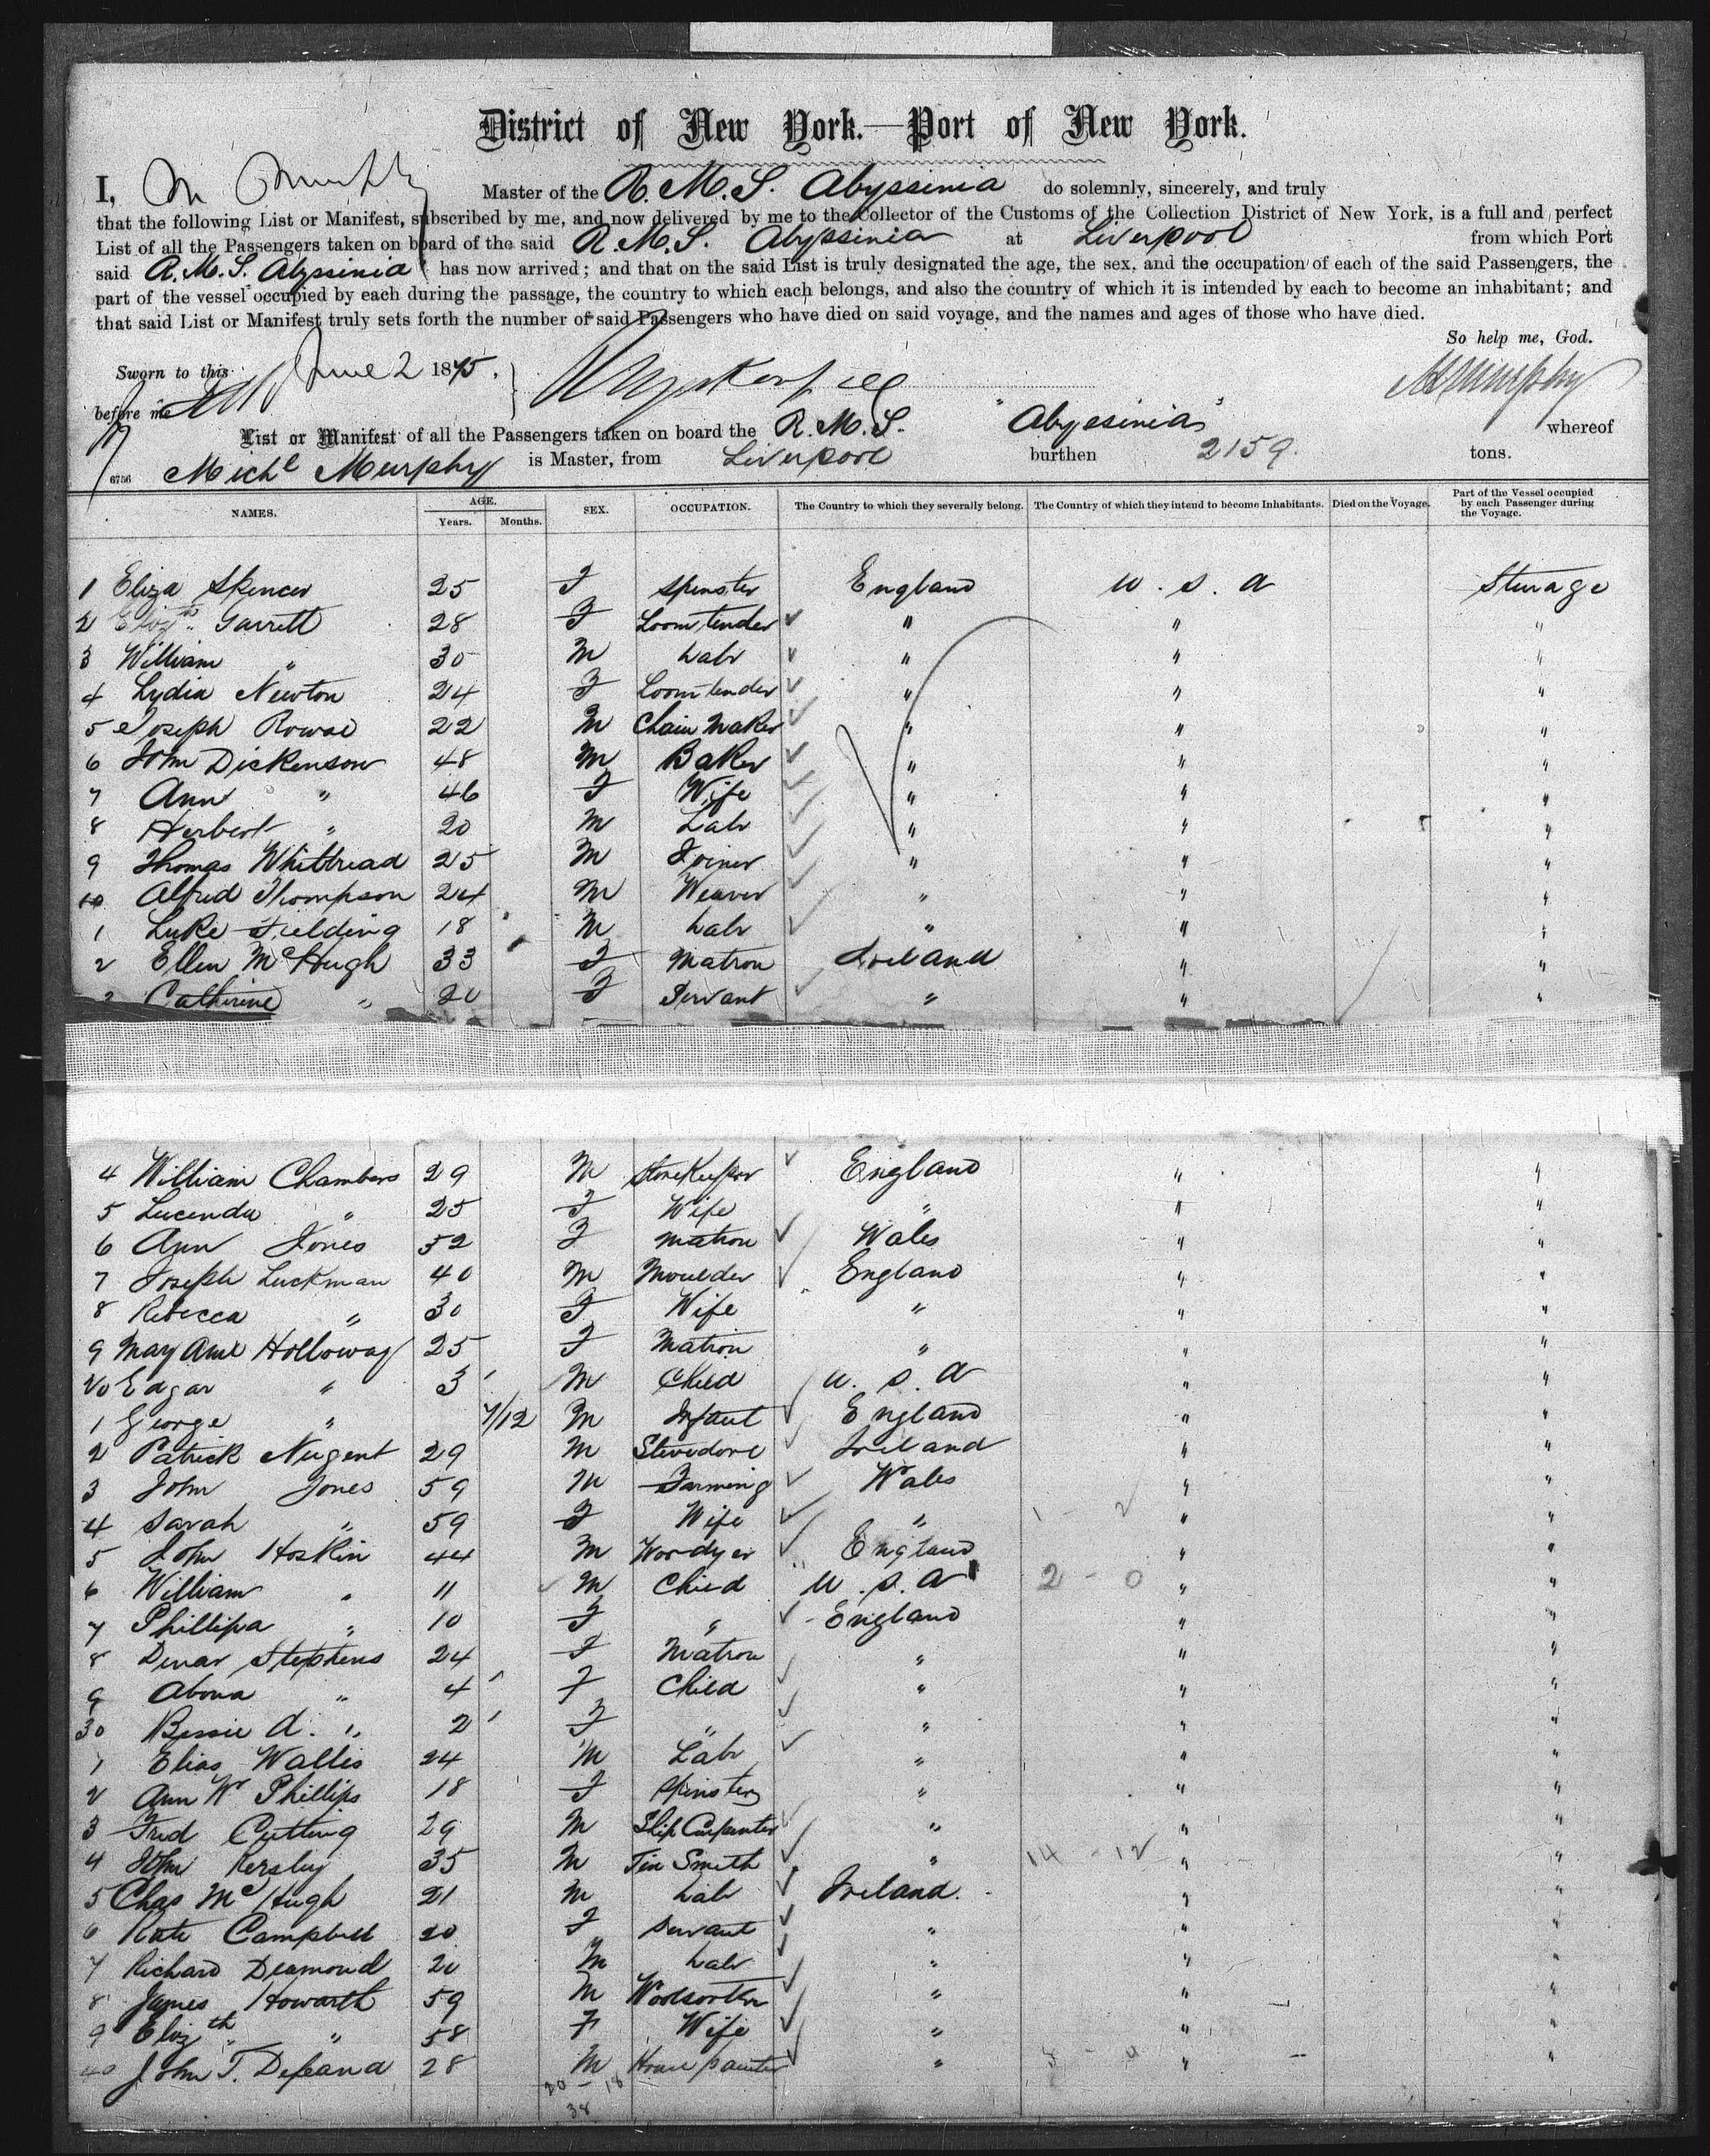 District of New York.—Port of New York.
I, M Murphy Master of the R. M. S. Abyssinia do solemnly, sincerely, and truly
that the following List or Manifest, subscribed by me, and now delivered by me to the Collector of the Customs of the Collection District of New York, is a full and perfect
List of all the Passengers taken on board of the said R. M. S. Abyssinia at Liverpool from which Port
said R. M. S. Abyssinia has now arrived; and that on the said List is truly designated the age, the sex, and the occupation of each of the said Passengers, the
part of the vessel occupied by each during the passage, the country to which each belongs, and also the country of which it is intended by each to become an inhabitant; and
that said List or Manifest truly sets forth the number of said Passengers who have died on said voyage, and the names and ages of those who have died.
So help me, God.
Sworn to this June 2 1875.
before me M Murphy
List or Manifest of all the Passengers taken on board the R. M. S. "Abyssinia" whereof
6756 Michl Murphy is Master, from Liverpool burthen 2159. tons.
NAMES. AGE. Years. Months. SEX. OCCUPATION. The Country to which they severally belong. The Country of which they intend to become Inhabitants. Died on the Voyage. Part of the Vessel occupied by each Passenger during the Voyage.
1 Eliza Spencer 25 F Spinster England U. S. A Sturage
2 Elizth Garrett 28 F Loom tender " " "
3 William " 30 M Labr " " "
4 Lydia Newton 24 F Loom tender " " "
5 Joseph 22 M Chain Maker " " "
6 John Dickenson 48 M Baker " " "
7 Ann " 46 F Wife " " "
8 Herbert " 20 M Labr " " "
9 Thomas Whittread 25 M Joiner " " "
10 Alfred Thompson 24 M Weaver " " "
1 Luke Fielding 18 M Labr " " "
2 Ellen McHugh 33 F Matron Ireland " "
3 Catherine " 20 F Servant " " "
4 William Chambers 29 M StoreKeeper England " "
5 Lucenda " 25 F Wife " " "
6 Ann Jones 52 F Matron Wales " "
7 Joseph Luckman 40 M Moulder England " "
8 Rebecca " 30 F Wife " " "
9 Mary Ann Holloway 25 F Matron " " "
20 Edgar " 3 M Child U. S. A " "
1 George " 7/12 M Infant England " "
2 Patrick Nugent 29 M Stevedore Ireland " "
3 John Jones 59 M Farming Wales " "
4 Sarah " 59 F Wife " " "
5 John Hoskin 44 M England " "
6 William " 11 M Child U. S. A " "
7 Phillipa " 10 F " England " "
8 Dinar Stephens 24 F Matron " " "
9 Abona " 4 F Child " " "
30 Bessie A. " 2 F " " " "
1 Elias Wallis 24 M Labr " " "
2 Ann W Phillips 18 F Spinster " " "
3 Fred Cutting 29 M Ship Carpenter " " "
4 John Kersley 35 M Tin Smith " " "
5 Chas McHugh 21 M Labr Ireland. " "
6 Kate Campbell 20 F Servant " " "
7 Richard Desmond 20 M Labr " " "
8 James Howarth 59 M Woolsorter " " "
9 Elizth " 58 F Wife " " "
40 John T. 28 M House painter " " "
20 - 18
38